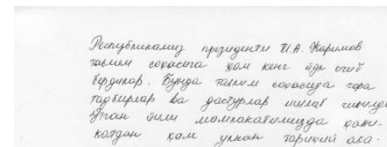 Республикамиз президенти И.А. Каримов
таълим соҳасига ҳам кенг йўл очиб
бердилар. Бунда таълим соҳасида чора
тадбирлар ва дастурлар ишлаб чиқилди
Ўтган йили мамлакатимизда
ҳам улкан тарихий аҳа-